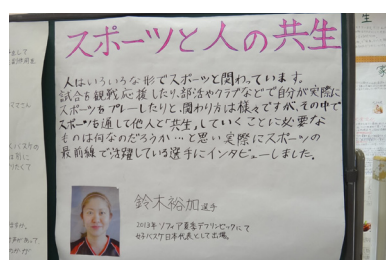 スポーツと人の共生
人はいろいろな形でスポーツと関わっています。
試合を観戦応援したり、部活やクラブなどで自分が実際に
スポーツをプレーしたりと、関わり方は様々ですが、その中で
スポーツを通して他人と「共生」していくことに必要な
ものは何なのだろうか…と思い実際にスポーツの
最前線で活躍している選手にインタビューしました。
鈴木裕加選手
2013年ソフィア夏季デフリンピックにて
女子バスケ日本代表として出場